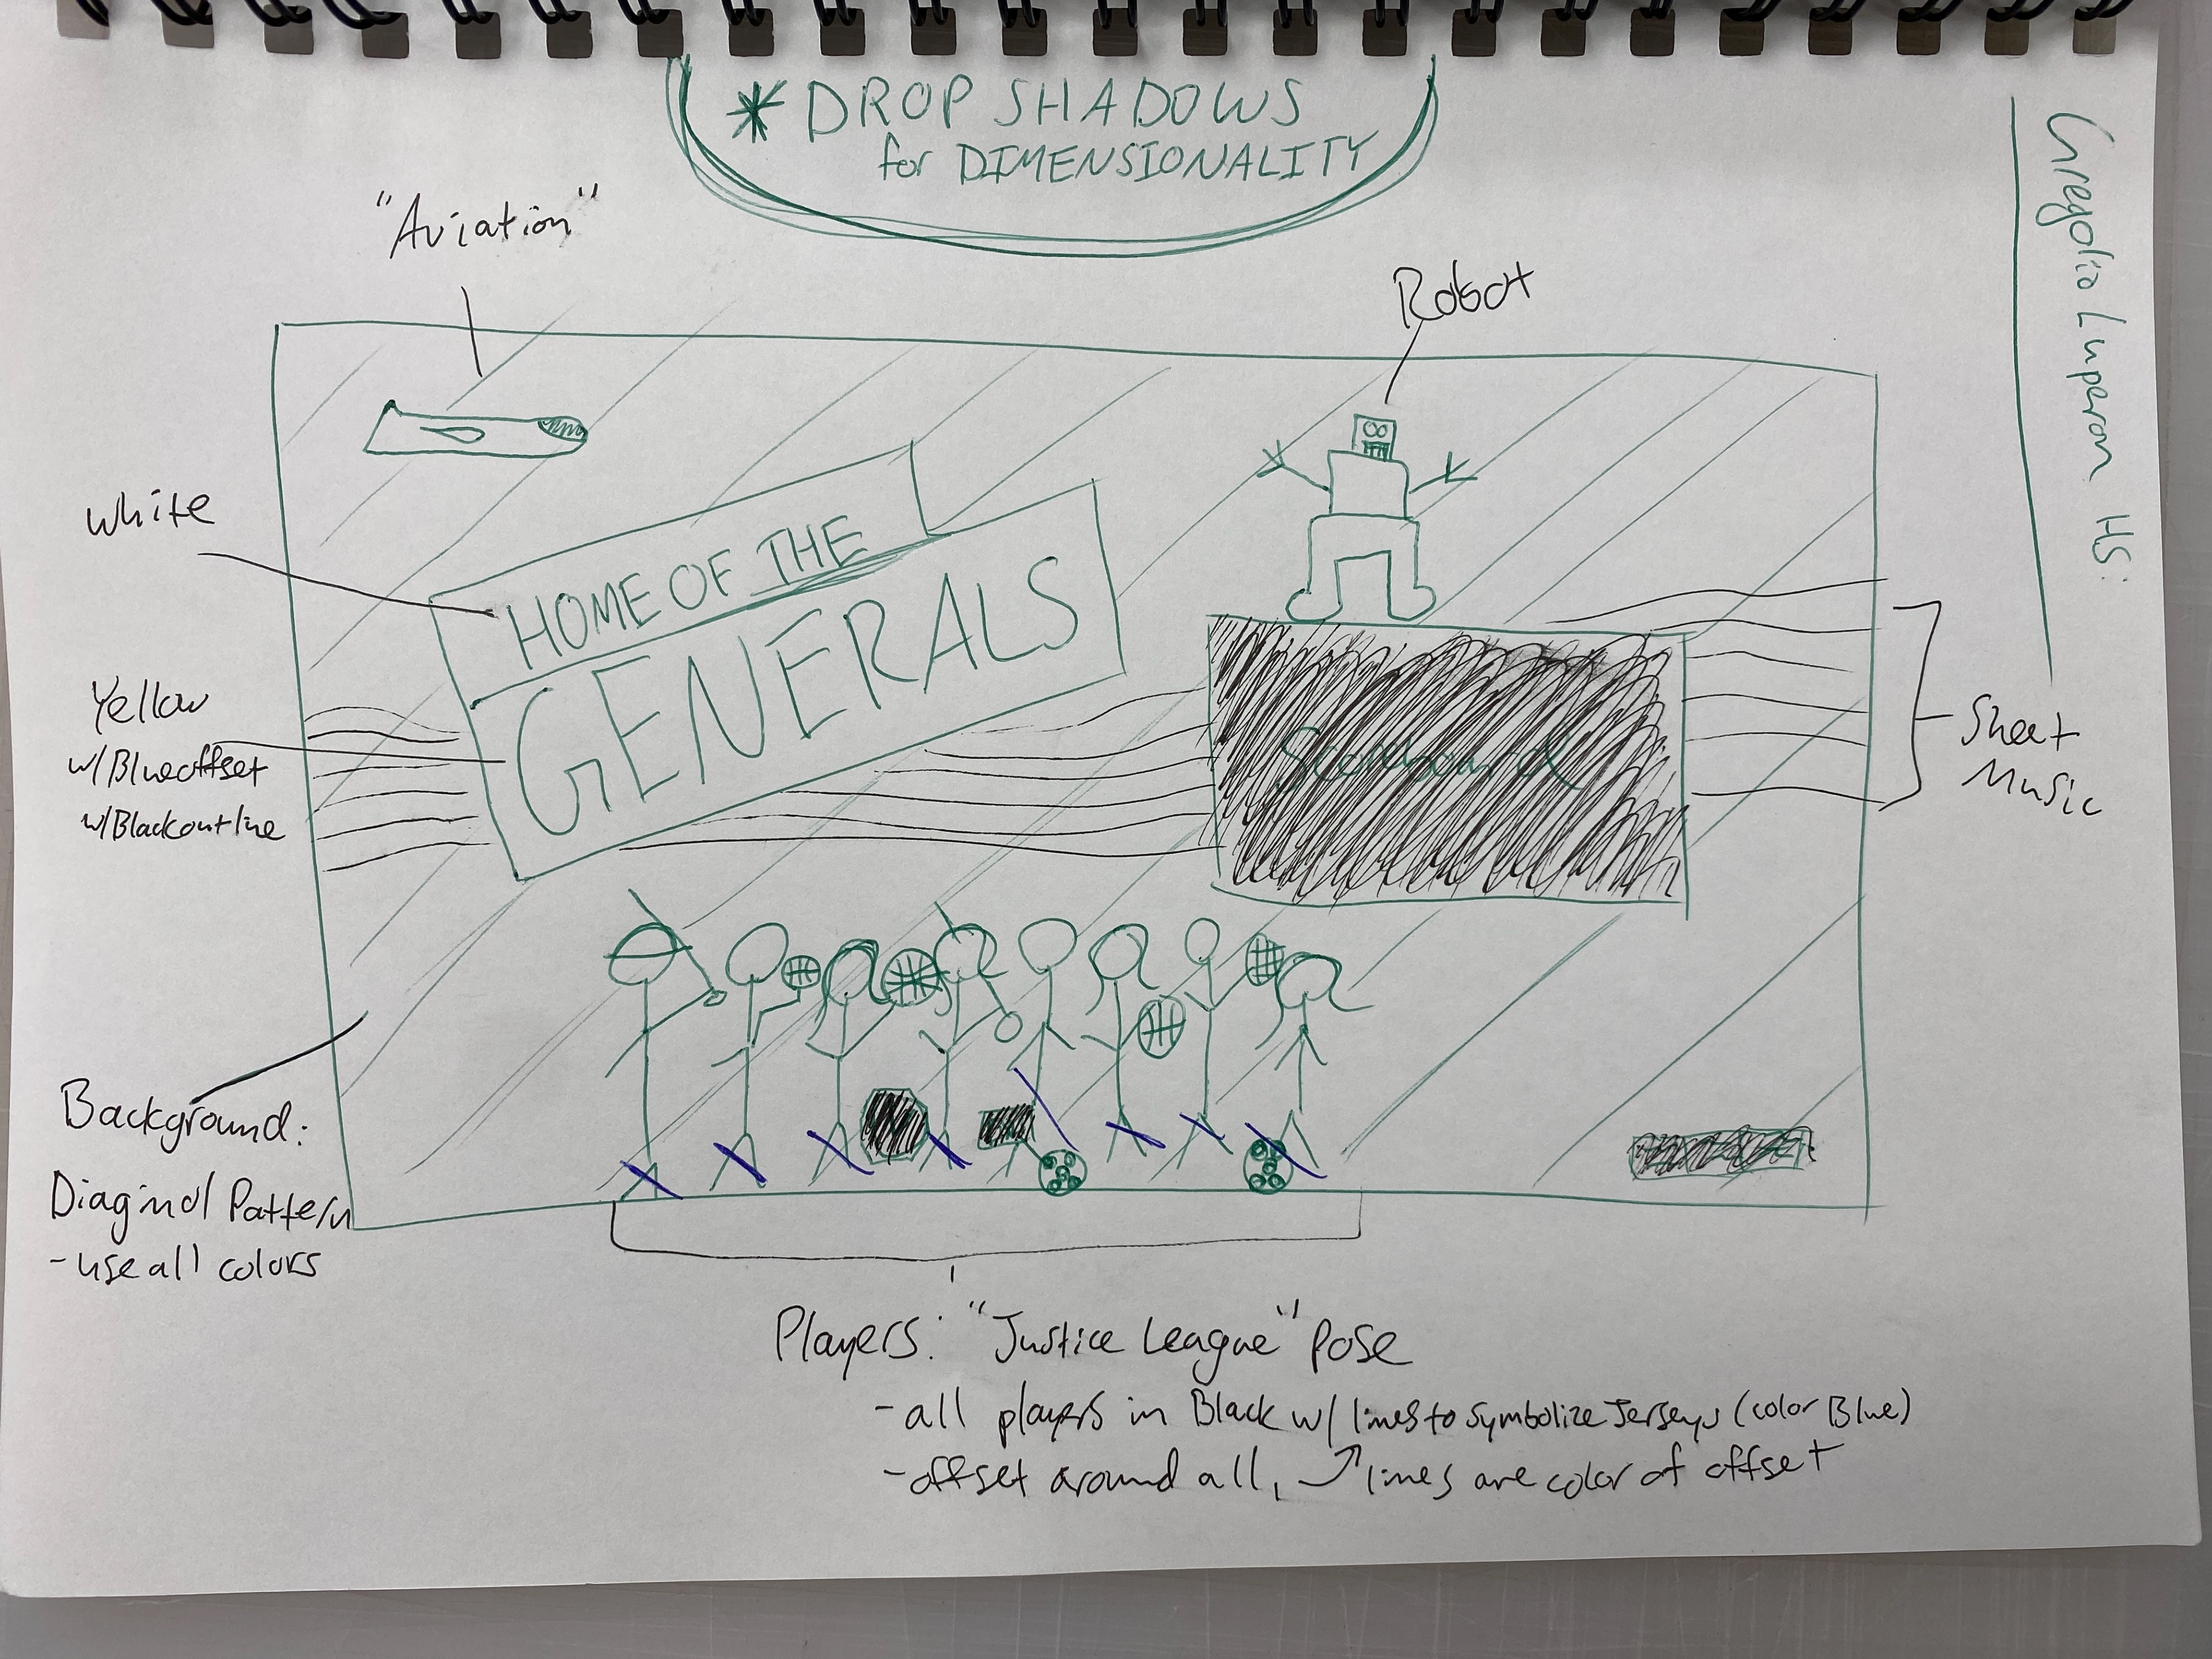 * DROP SHADOWS
for DIMENSIONALITY
Gregolio Luperon HS:
"Aviation"
Robot
White
HOME OF THE
GENERALS
Yellow
w/Blue offset
w/Black outline
Scoreboard
Sheet
Music
Background:
Diaginol Pattern
- use all colors
Players: "Justice League" Pose
- all players in Black w/ lines to symbolize Jerseys (color Blue)
- offset around all, lines are color of offset